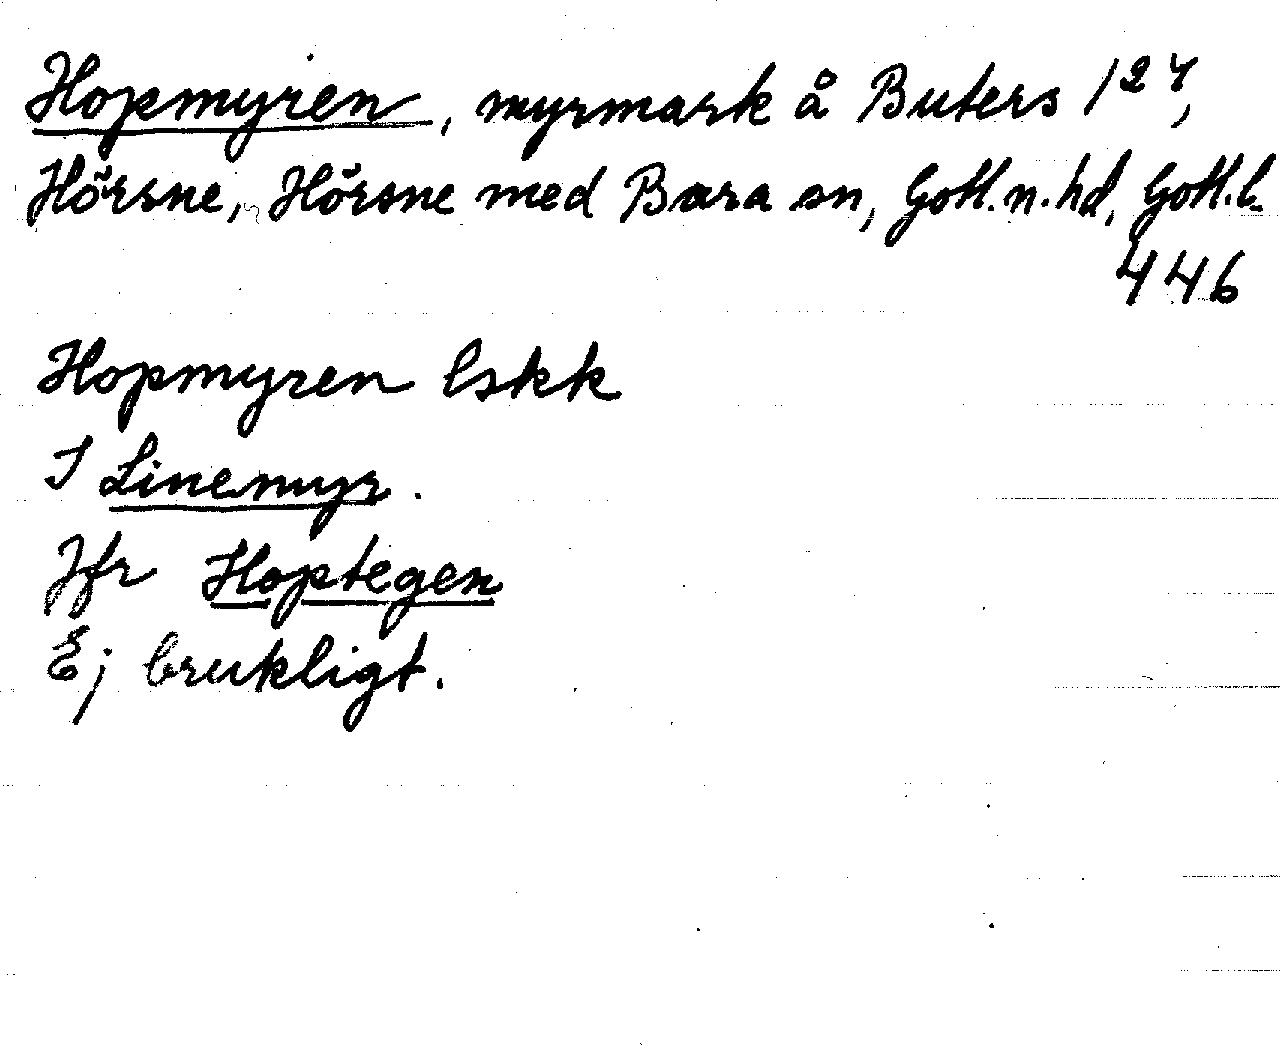 Hopmyren, myrmark å Buters 1²⁴,
Hörsne, Hörsne med Bara sn, Gotl. n. hd, Gotl. l.
446
Hopmyren lskk
I Linemyr.
Jfr Hoptegen
Ej brukligt.